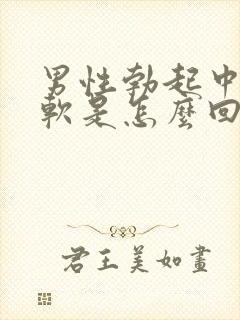 男性勃起中
軟是怎麼回
君王美如畫